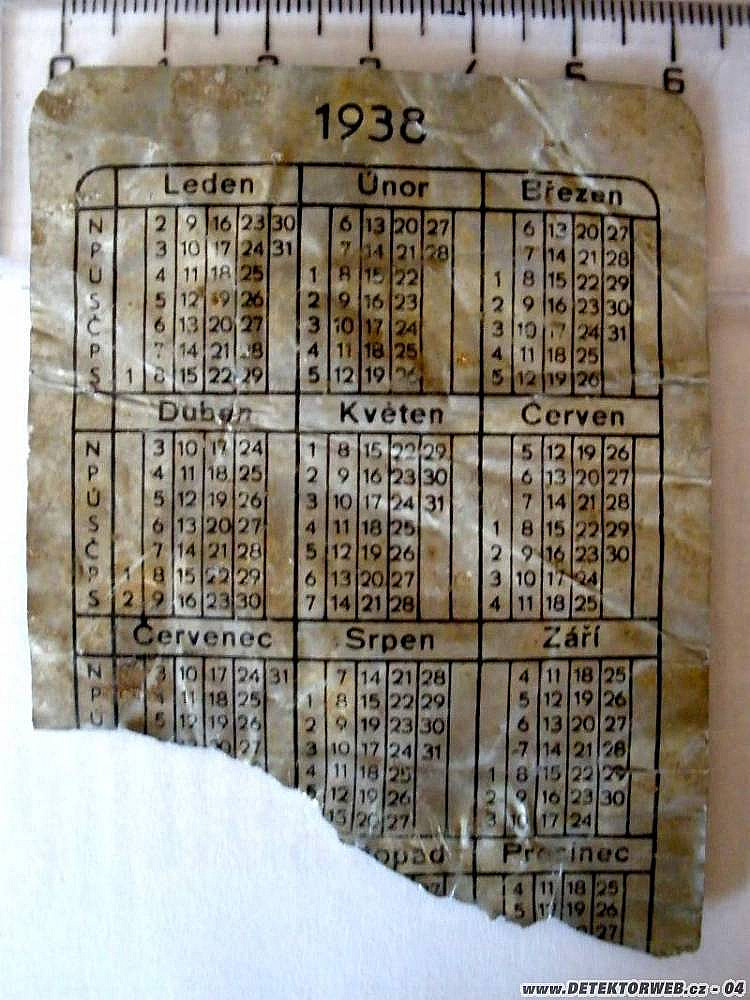 0 1 2 3 4 5 6
1938
Leden Únor Březen
N 2 9 16 23 30 6 13 20 27 6 13 20 27
P 3 10 17 24 31 7 14 21 28 7 14 21 28
Ú 4 11 18 25 1 8 15 22 1 8 15 22 29
S 5 12 19 26 2 9 16 23 2 9 16 23 30
Č 6 13 20 27 3 10 17 24 3 10 17 24 31
P 7 14 21 28 4 11 18 25 4 11 18 25
S 1 8 15 22 29 5 12 19 26 5 12 19 26
Duben Květen Červen
N 3 10 17 24 1 8 15 22 29 5 12 19 26
P 4 11 18 25 2 9 16 23 30 6 13 20 27
Ú 5 12 19 26 3 10 17 24 31 7 14 21 28
S 6 13 20 27 4 11 18 25 1 8 15 22 29
Č 7 14 21 28 5 12 19 26 2 9 16 23 30
P 1 8 15 22 29 6 13 20 27 3 10 17 24
S 2 9 16 23 30 7 14 21 28 4 11 18 25
Červenec Srpen Září
N 3 10 17 24 31 7 14 21 28 4 11 18 25
P 4 11 18 25 1 8 15 22 29 5 12 19 26
Ú 5 12 19 26 2 9 19 23 30 6 13 20 27
20 27 3 10 17 24 31 7 14 21 28
4 11 18 25 1 8 15 22 29
5 12 19 26 2 9 16 23 30
13 20 27 3 10 17 24
topad Prosinec
27 4 11 18 25
5 12 19 26
27
www.DETEKTORWEB.cz - 04